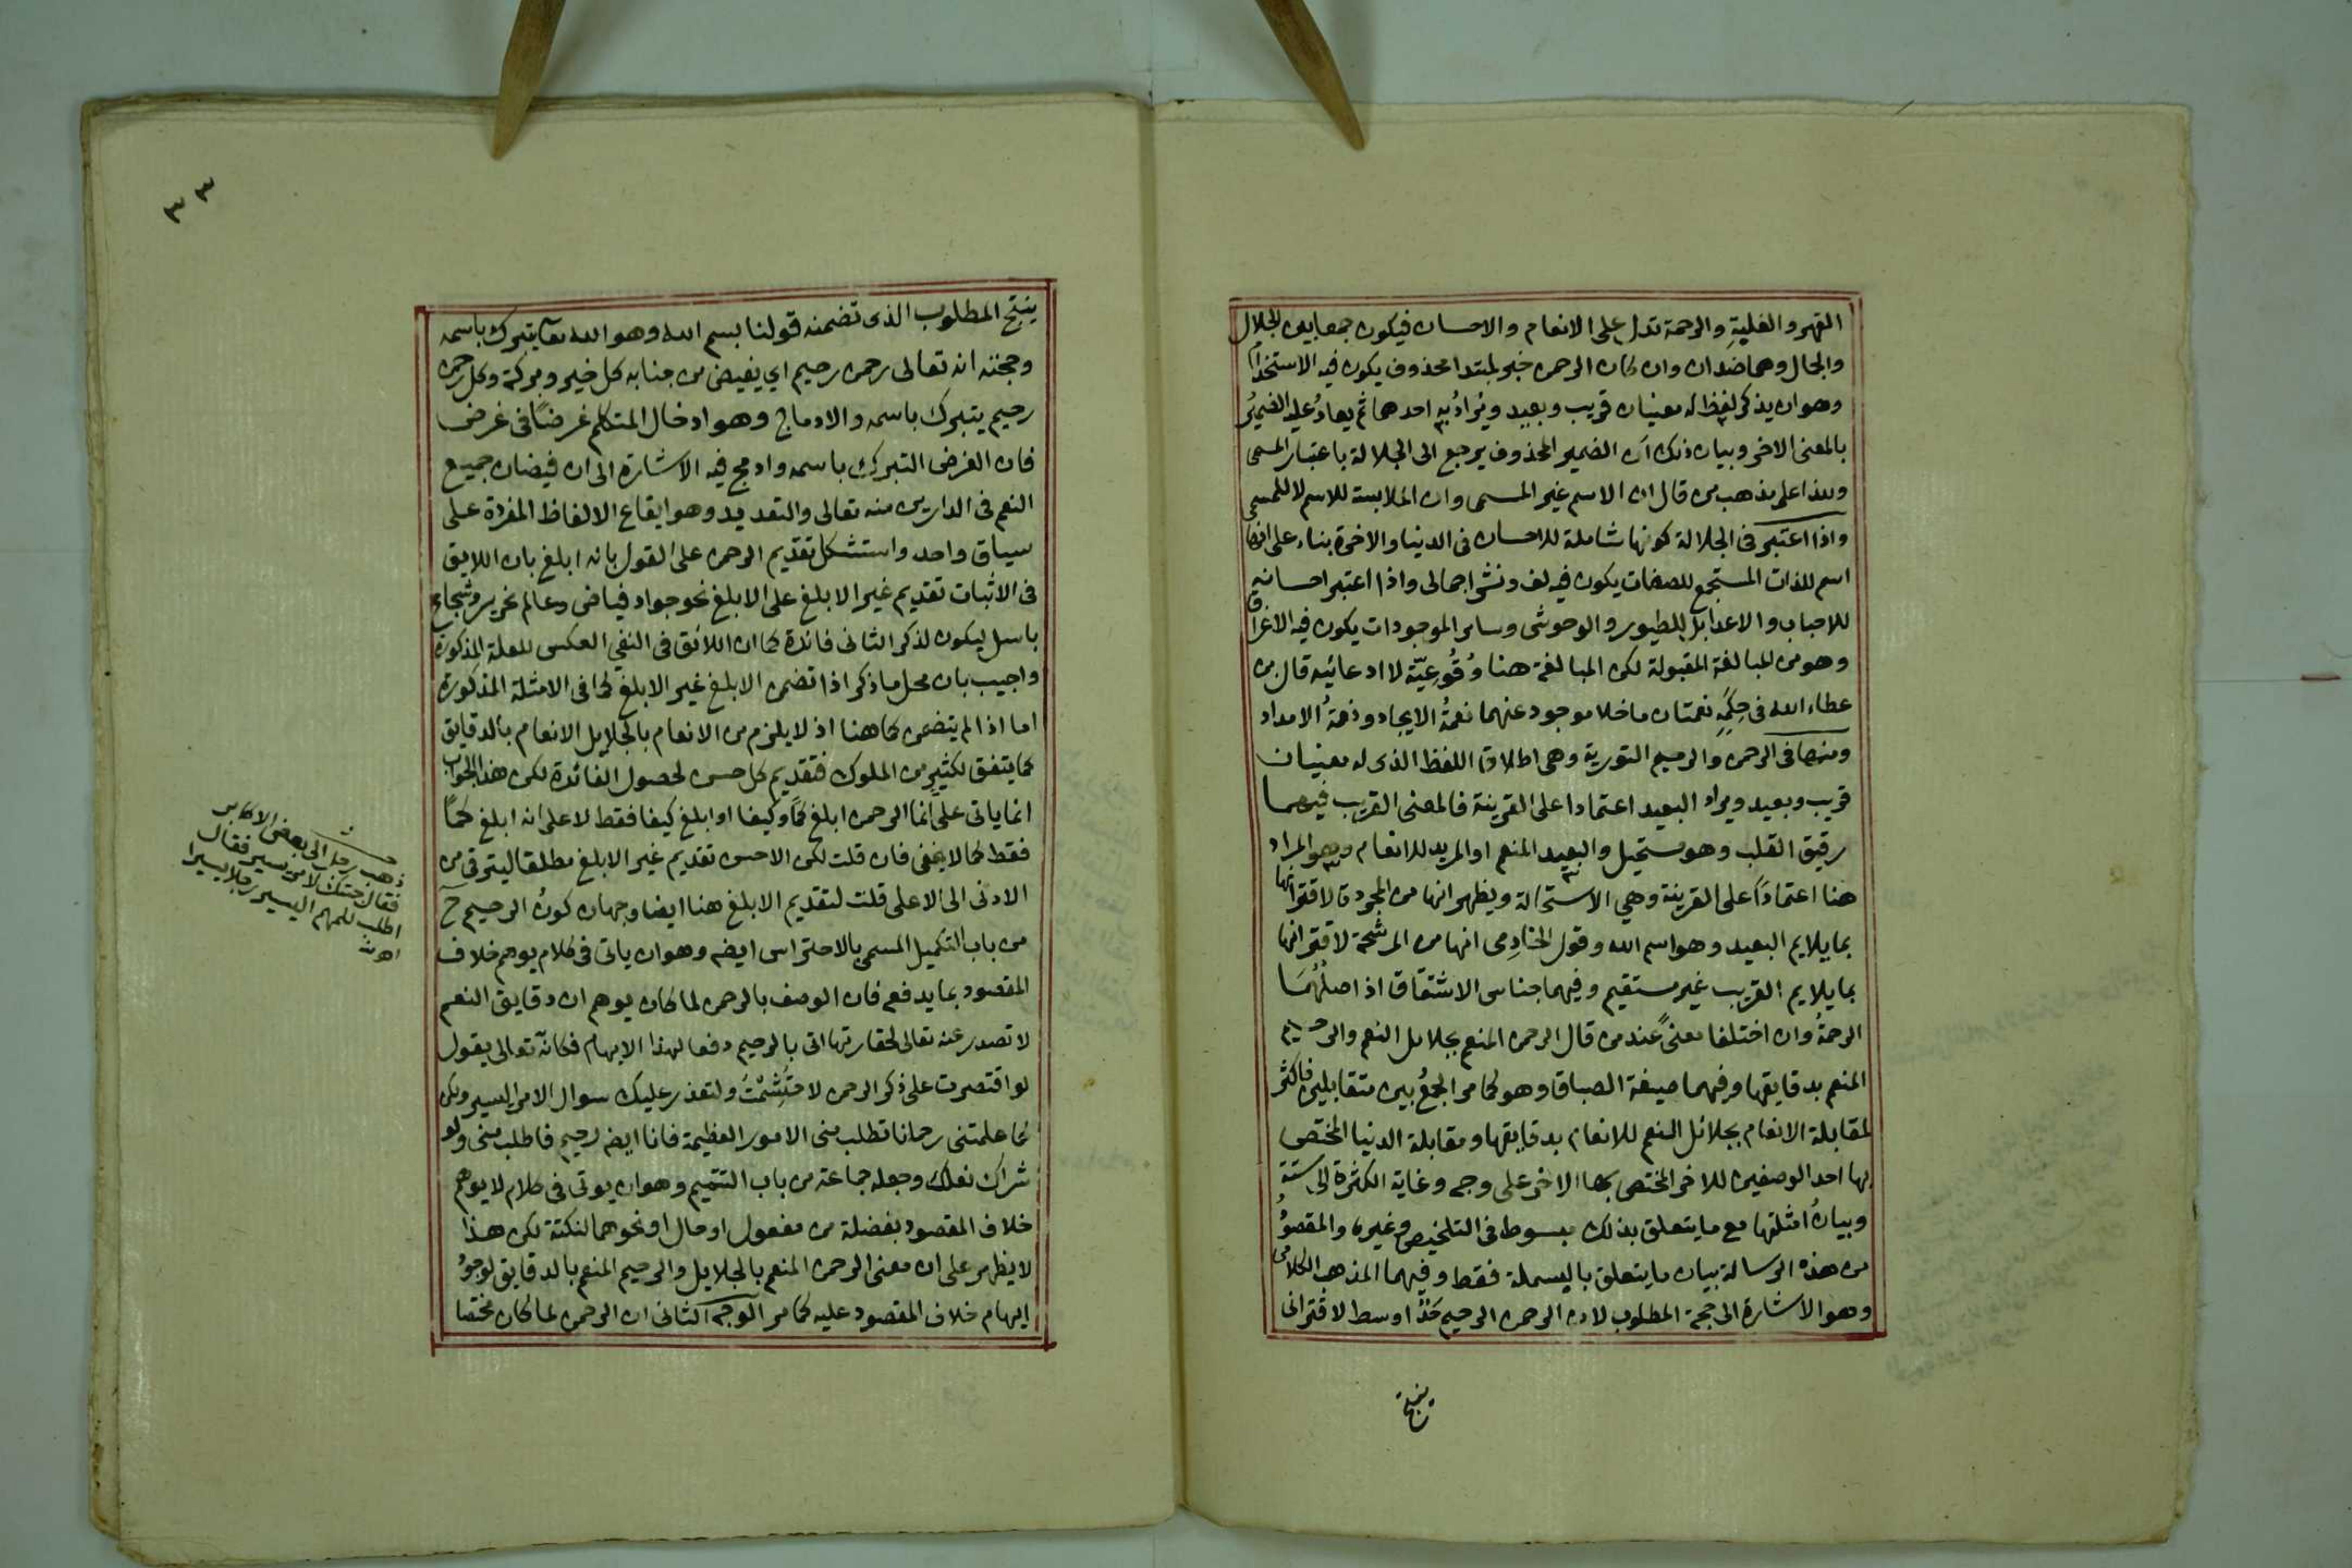 القهر والغلبة والرحمة تدل على الانعام والاحسان فيكون جمعا بين الجلال
والجمال وهما ضدان وان كان الرحمن خبر لمبتدا محذوف يكون فيه الاستخدام
وهو ان يذكر لفظ له معنيان قريب وبعيد ويُرادُ به احدهما ثم يعادُ عليه الضميرُ
بالمعنى الاخر وبيان ذلك ان الضمير المحذوف يرجع الى الجلالة باعتبار المسمى
وهذا على مذهب من قال ان الاسم غير المسمى وان الملابسة للاسم لا للمسمى
واذا اعتبر فى الجلالة كونها شاملة للاحسان فى الدنيا والاخرة بناء على انها
اسم للذات المستجمع للصفات يكون فيه لف ونشر اجمالى واذا اعتبر احسانه
للاحباب والاعدا بل للطيور والوحوش وساير الموجودات يكون فيه الاغراق
وهو من المبالغة المقبولة لكن المبالغة هنا وُقُوعيّة لا ادعائيه قال بن
عطاء الله فى حِكَمِه نعمتان ما خلا موجود عنهما نعمةُ الايجاد ونعمةُ الامداد
ومنها فى الرحمن والرحيم التورية وهى اطلاق اللفظ الذى له معنيان
قريب وبعيد ويراد البعيد اعتمادا على القرينة فالمعنى القريب فيهما
رقيق القلب وهو مستحيل والبعيد المنعم او المريد للانعام وهو المراد
هنا اعتمادًا على القرينة وهي الاستحالة ويظهر انها من المجردة لاقترانها
بما يلايم البعيد وهو اسم الله وقول الخادِمى انها من المرشحة لاقترانها
بما يلايم القريب غير مستقيم وفيهما جناس الاشتقاق اذ اصلُهُمَا
الرحمةُ وان اختلفا معنىً عند من قال الرحمن المنعم بجلايل النعم والرحيم
المنعم بدقايقها وفيهما صيغة الطباق وهو كما مر الجمعُ بين متقابلين فاكثر
لمقابلة الانعام بجلائل النعم للانعام بدقايقها ومقابلة الدنيا المختص
بها احد الوصفين للاخر المختص بها الاخر على وجه وغاية الكثرة الى ستة
وبيانُ امثلتها مع ما يتعلق بذلك مبسوط فى التلخيص وغيره والمقصودُ
من هذه الرسالة بيان ما يتعلق بالبسملة فقط وفيهما المذهب الكلامى
وهو الاشارة الى حجة المطلوب لان الرحمن الرحيم حَدٌّ اوسط لاقترانى
ينتج
٣ ٣
ينتج المطلوب الذى تضمنه قولنا بسم الله وهو الله تعا يتبرك باسمه
وحجته انه تعالى رحمن رحيم اي يفيض من جنابه كل خير وبركة وكل رحمن
رحيم يتبرك باسمه والادماج وهو ادخال المتكلم غرضًا فى غرض
فان الغرض التبرك باسمه وادمج فيه الاشارة الى ان فيضان جميع
النعم فى الدارين منه تعالى والتعديد وهو ايقاع الالفاظ المفردة على
سياق واحد واستشكل تقديم الرحمن على القول بانه ابلغ بان اللايق
فى الاثبات تقديم غير الابلغ على الابلغ نحو جواد فياض وعالم نحرير وشجاع
باسل ليكون لذكر الثانى فائدة كما ان اللائق فى النفي العكس للعلة المذكورة
واجيب بان محل ما ذكر اذا تضمن الابلغ غير الابلغ كما فى الامثلة المذكورة
اما اذا لم يتضمن كما هنا اذ لا يلزم من الانعام بالجلايل الانعام بالدقايق
كما يتفق لكثير من الملوك فتقديم كل حسن لحصول الفائدة لكن هذا الجواب
انما ياتى على انما الرحمن ابلغ كمًا وكيفا او ابلغ كيفا فقط لا على انه ابلغ كمًا
فقط كما لا يخفى فان قلت لكن الاحسن تقديم غير الابلغ مطلقا ليترقى من
الادنى الى الاعلى قلت لتقديم الابلغ هنا ايضا وجهان كونُ الرحيم ح
من باب التكميل المسمى بالاحتراس ايضه وهو ان ياتى فى كلام يوهم خلاف
المقصود بما يدفعه فان الوصف بالرحمن لما كان يوهم ان دقايق النعم
لا تصدر عنه تعالى لحقارتها اتى بالرحيم دفعا لهذا الايهام فكانه تعالى يقول
لو اقتصرت على ذكر الرحمن لاحتَشَمْتُ ولتعذر عليك سوال الامر اليسير ولكن
كما علمتنى رحمانا تطلب منى الامور العظيمة فانا ايضه رحيم فاطلب منى ولو
شراك نعلك وجعله جماعة من باب التتميم وهو ان يوتى فى كلام لا يوهم
خلاف المقصود بفضلة من مفعول او حال او نحوهما لنكتة لكن هذا
لا يظهر على ان معنى الرحمن المنعم بالجلايل والرحيم المنعم بالدقايق لوجودُ
ايهام خلاف المقصود عليه كما مر الوجه الثانى ان الرحمن لما كان مختصا
ذهب رجل الى بعض الاكابر
فقال جئتك لامر يسير فقال
اطلب للمهم اليسير رجلا يسيرا